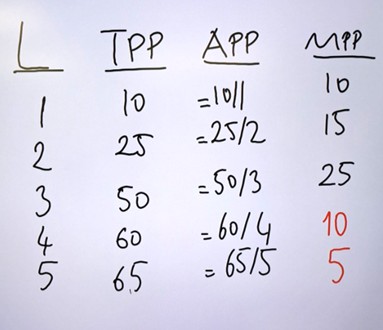 L TPP APP MPP
1 10 =10/1 10
2 25 =25/2 15
3 50 =50/3 25
4 60 =60/4 10
5 65 =65/5 5